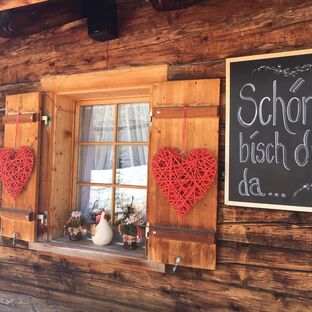 Schön
bisch d
da...